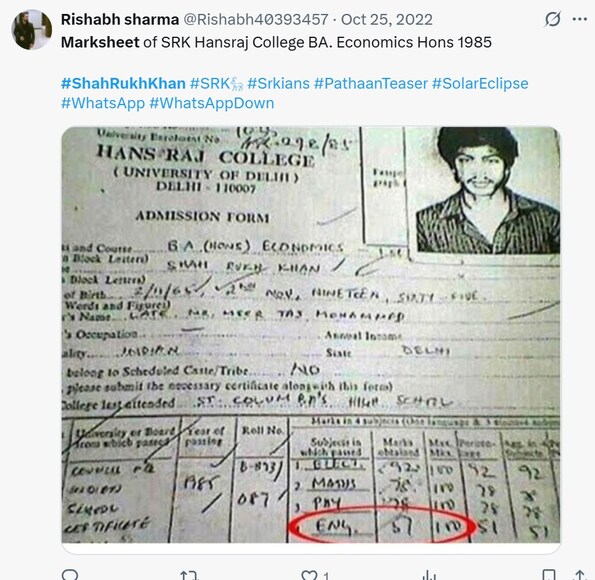 Rishabh sharma @Rishabh40393457 · Oct 25, 2022
Marksheet of SRK Hansraj College BA. Economics Hons 1985
#ShahRukhKhan #SRK #Srkians #PathaanTeaser #SolarEclipse
#WhatsApp #WhatsAppDown
University Enrolment No
HANS RAJ COLLEGE
(UNIVERSITY OF DELHI)
DELHI - 110007
ADMISSION FORM
and Course B.A (HONS) ECONOMICS
n Block Letters) SHAH RUKH KHAN
Block Letters)
of Birth 2/11/65, 2nd NOV, NINETEEN, SIXTY-FIVE.
Words and Figures)
's Name LATE. MR. MEER TAJ MOHAMMAD
's Occupation Annual Income
ality INDIAN State DELHI
belong to Scheduled Caste/Tribe NO
please submit the necessary certificate alongwith this form)
College last attended ST. COLUMBA'S HIGH SCHOOL
Marks in 4 subjects
University or Board from which passed Year of passing Roll No. Subjects in which passed Marks obtained Max. Mks.
COUNCIL INDIAN SCHOOL CERTIFICATE 1985
1. ELECT. 92 100 92 92
2. MATHS 78 100 78
3. PHY 78 100 78 78
ENG. 51 100 51 51
1